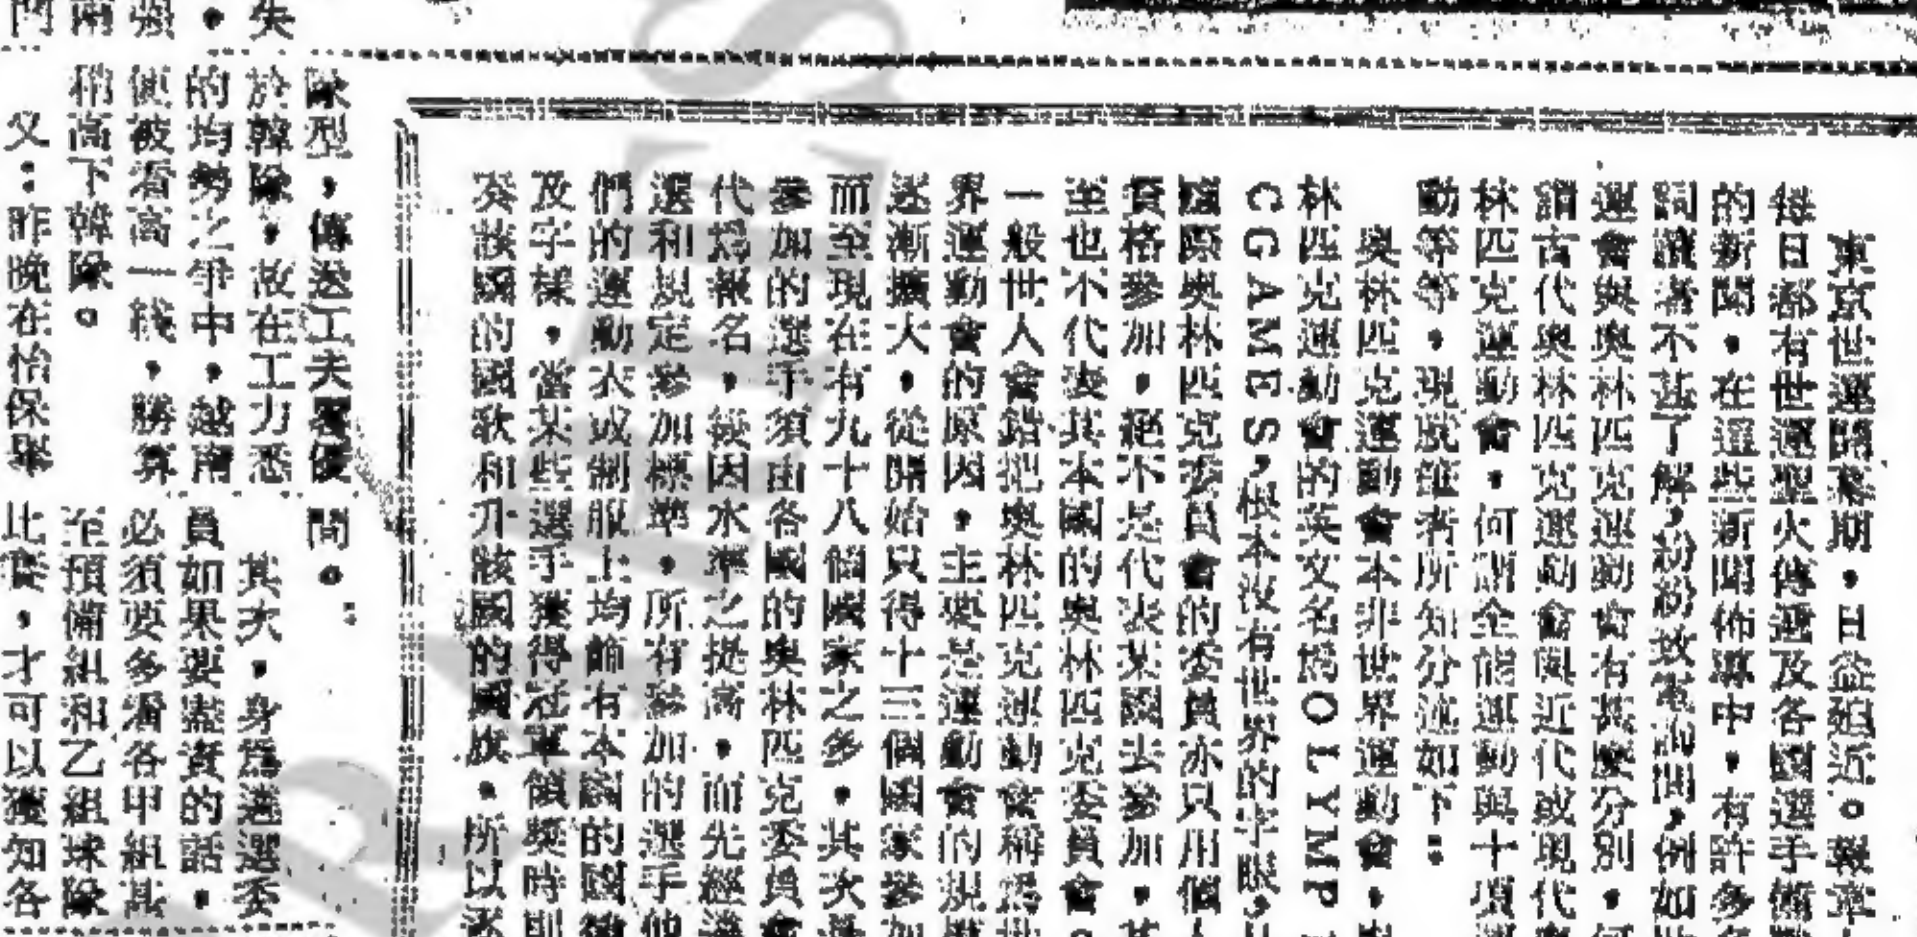 東京世運開幕期，日益廹近。報章
每日都有世運聖火傳遞及各國選手備戰
的新聞，在這些新聞佈導中，有許多名
詞讀者不甚了解，紛紛致電詢問，例如世
運會與奧林匹克運動會有甚麼分別，何
謂古代奧林匹克運動會與近代或現代奧
林匹克運動會，何謂全能運動與十項運
動等等，現就筆者所知分述如下：
奧林匹克運動會本非世界運動會，奧
林匹克運動會的英文名爲OLYMPI
CGAMES，根本沒有世界的字眼，且
國際奧林匹克委員會的委員亦只用個人
資格參加，絕不是代表某國去參加，甚
至也不代表其本國的奧林匹克委員會。
一般世人會錯把奧林匹克運動會稱爲世
界運動會的原因，主要是運動會的規模
逐漸擴大，從開始只得十三個國家參加
而至現在有九十八個國家之多，其次是
參加的選手須由各國的奧林匹克委員會
代爲報名，後因水準之提高，而先經過
選和規定參加標準，所有參加的選手他
們的運動衣或制服上均飾有本國的國徽
及字樣，當某些選手獲得冠軍領獎時則
奏該國的國歌和升該國的國旗，所以逐
失
强，
兩
門
隊型，傳送工夫畧優
於韓隊，故在工力悉
的均勢之爭中，越南
便被看高一綫，勝算
稍高下韓隊。
又：昨晚在怡保舉
間。
其次，身爲選選委
員如果要盡責的話，
必須要多看各甲組甚
至預備組和乙組球隊
比賽，才可以獲知各